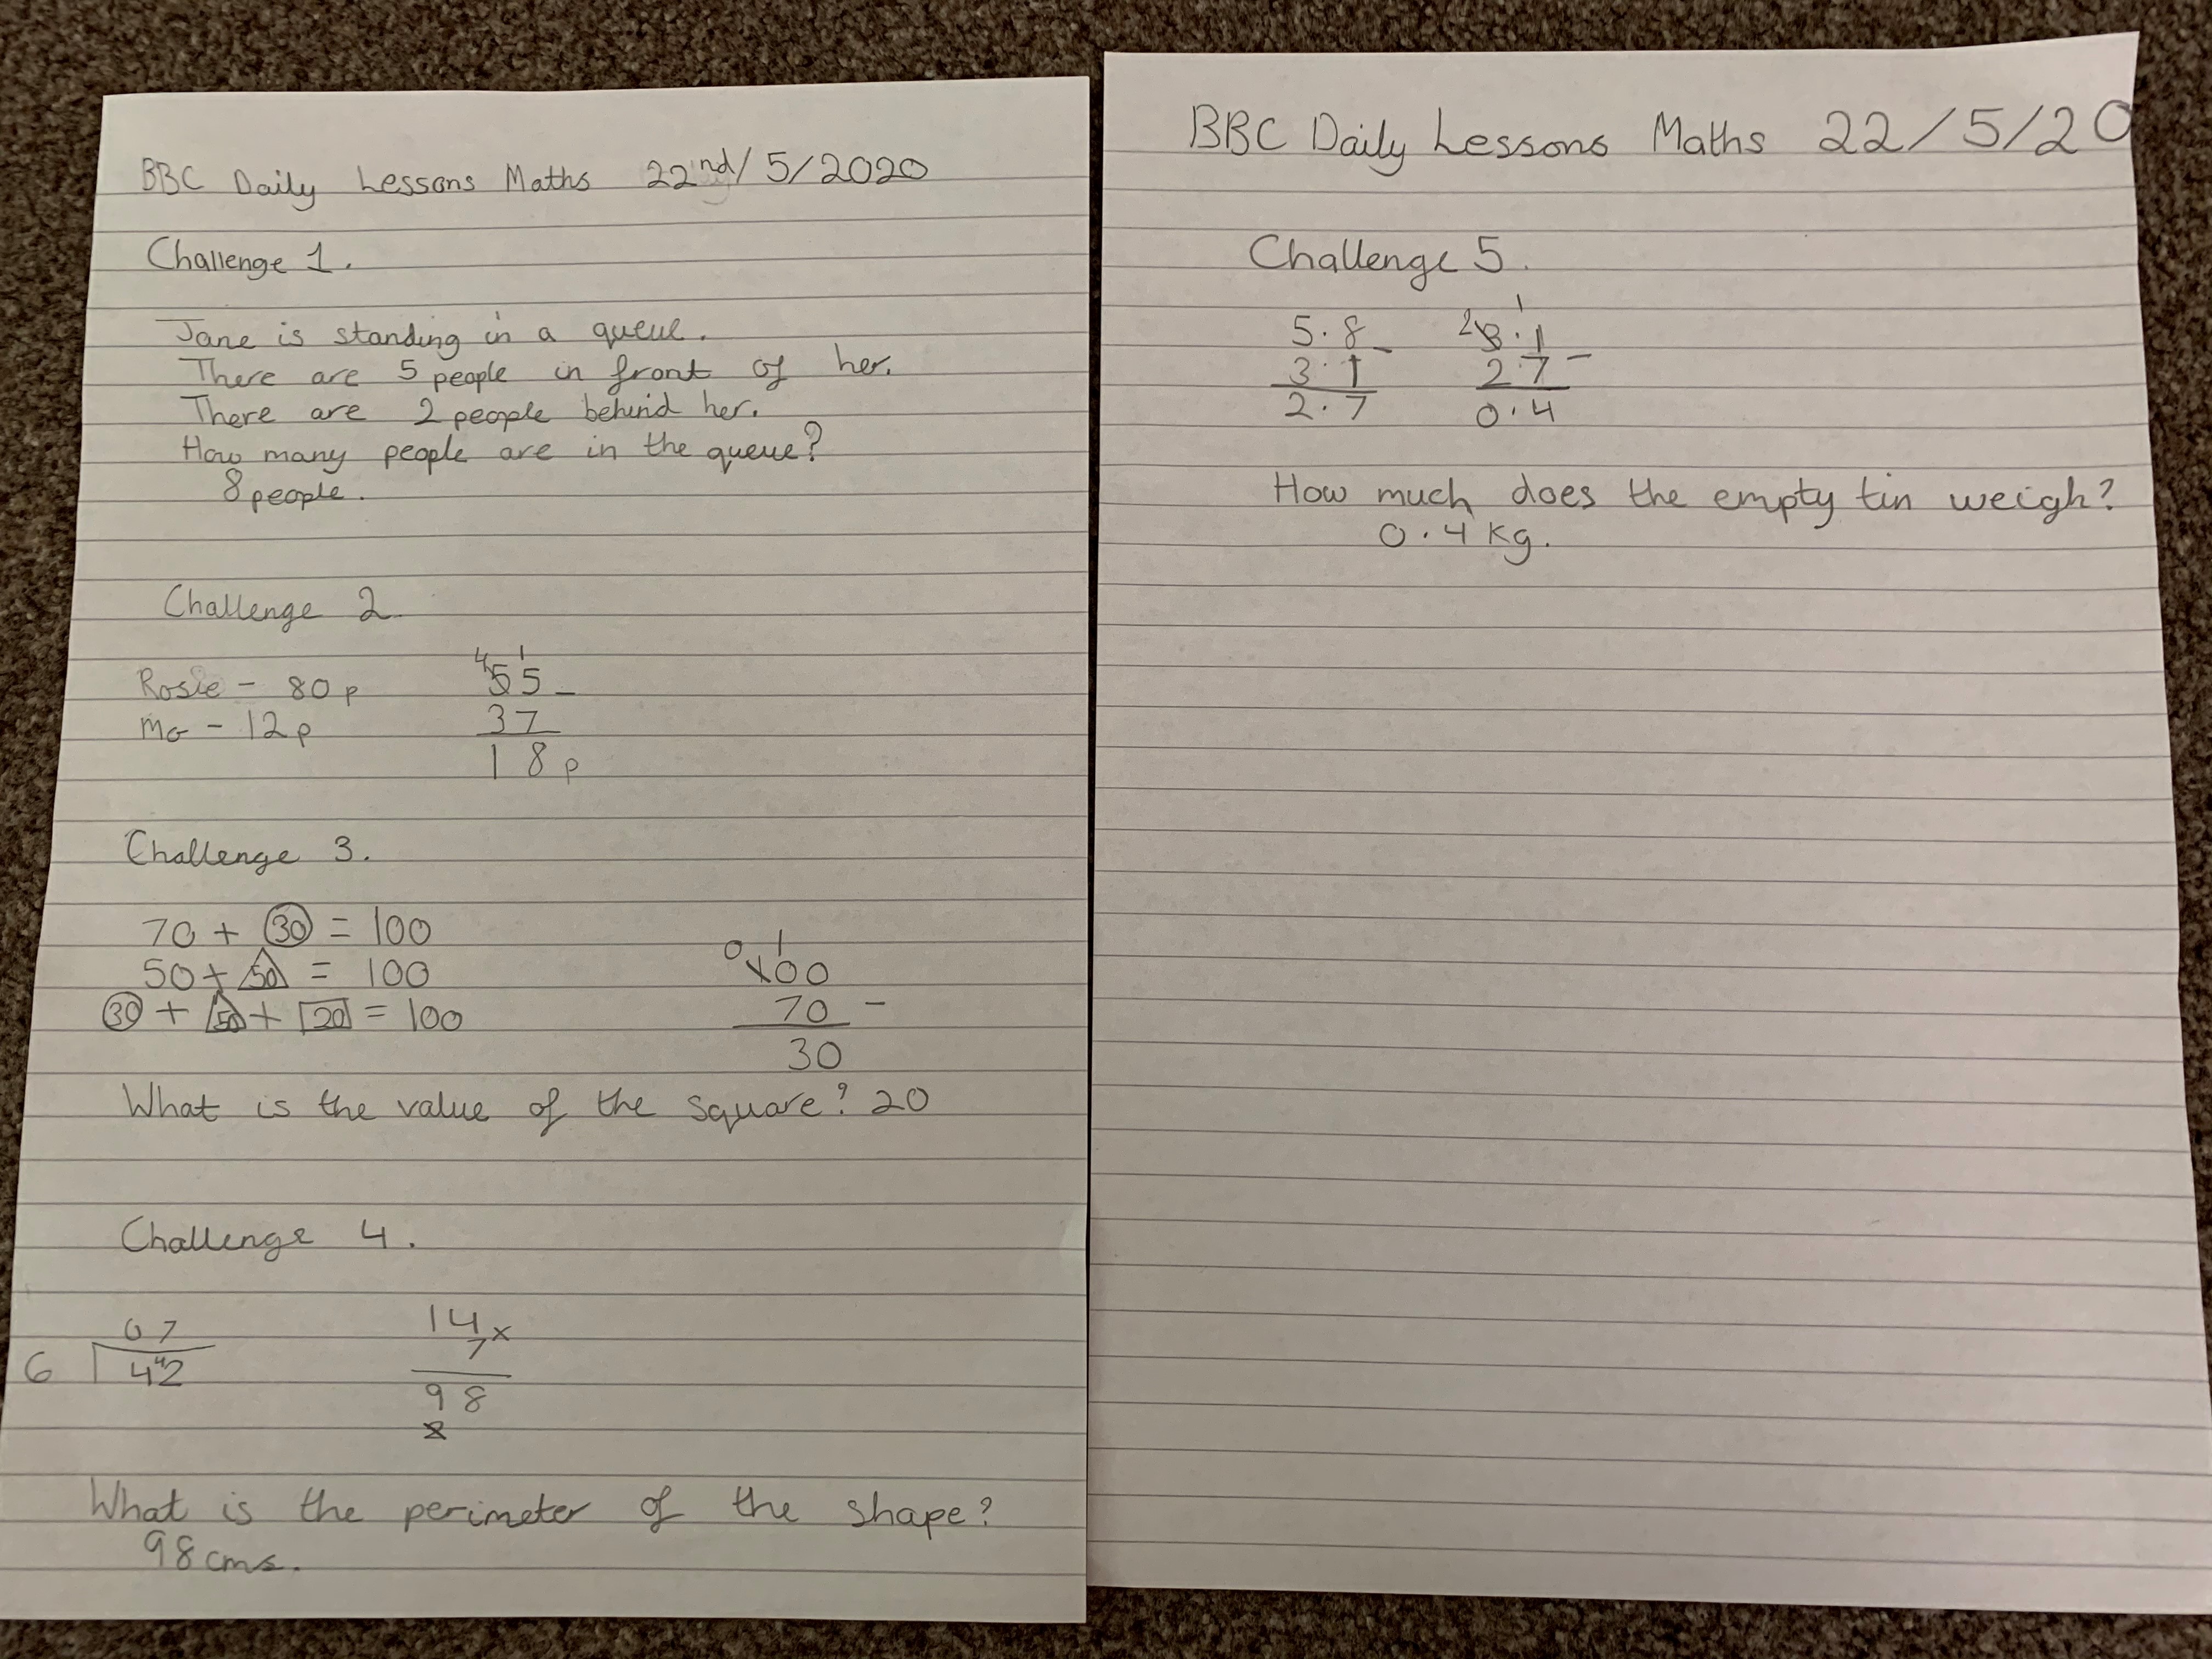 BBC Daily Lessons Maths 22nd/5/2020
Challenge 1.
Jane is standing in a queue.
There are 5 people in front of her.
There are 2 people behind her.
How many people are in the queue?
8 people.
Challenge 2
Rosie - 80p
Mo - 12p
4 1
55 -
37
18p
Challenge 3.
70 + 30 = 100
50 + 50 = 100
30 + 50 + 20 = 100
0 1
100
70 -
30
What is the value of the square? 20
Challenge 4.
07
6 4 4 2
14 x
7
98
2
What is the perimeter of the shape?
98cms.
BBC Daily Lessons Maths 22/5/20
Challenge 5.
5.8 -
3.1
2.7
2 1
3.1
2.7 -
0.4
How much does the empty tin weigh?
0.4 kg.